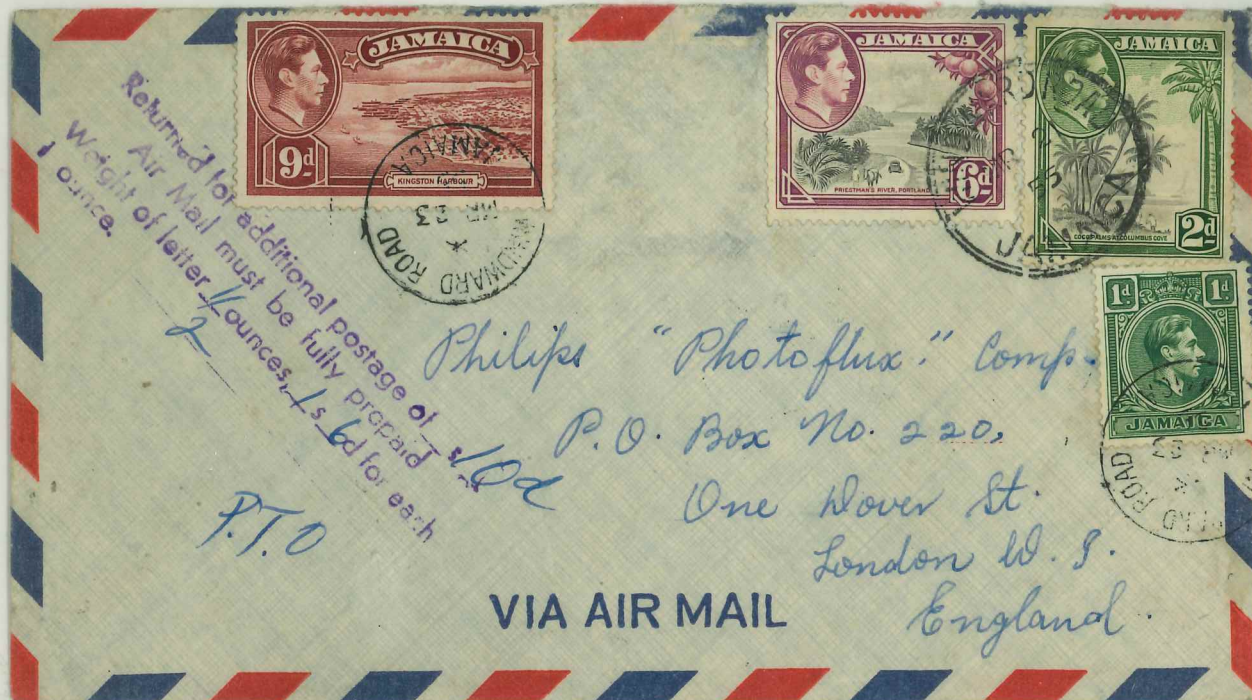 JAMAICA
9d
KINGSTON HARBOUR
JAMAICA
6d
PRIESTMAN'S RIVER, PORTLAND
JAMAICA
2d
COCO PALMS AT COLUMBUS COVE
1d 1d
JAMAICA
WINDWARD ROAD
MR 23
JAMAICA
ROAD
23
Returned for additional postage of - s. 10d
Air Mail must be fully prepaid
Weight of letter 1/2 ounces, 1s 6d for each
1 ounce.
P.T.O
Philips "Photoflux." Comp.
P.O. Box No. 220,
One Dover St.
London W. I.
England.
VIA AIR MAIL